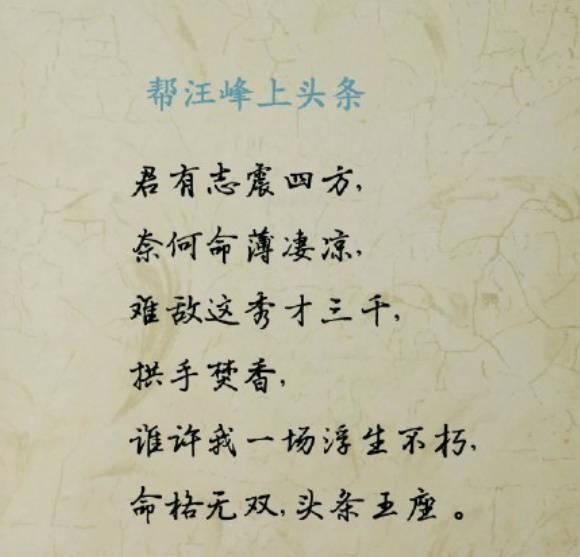 帮汪峰上头条
君有志震四方,
奈何命薄凄凉,
难敌这秀才三千,
拱手焚香,
谁许我一场浮生不朽,
命格无双,头条王座。